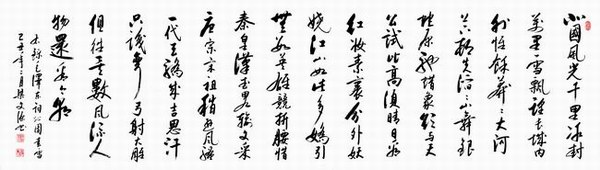 北國風光千里冰封
萬里雪飄望長城內
外惟餘莽〻大河
上下頓失滔〻山舞銀
蛇原馳蠟象欲與天
公試比高須晴日看
紅妝素裹分外妖
嬈江山如此多嬌引
無數英雄競折腰惜
秦皇漢武略輸文采
唐宗宋祖稍遜風騷
一代天驕成吉思汗
只識彎弓射大雕
俱往矣數風流人
物還看今朝
右錄毛澤東詞沁園春雪
年二月